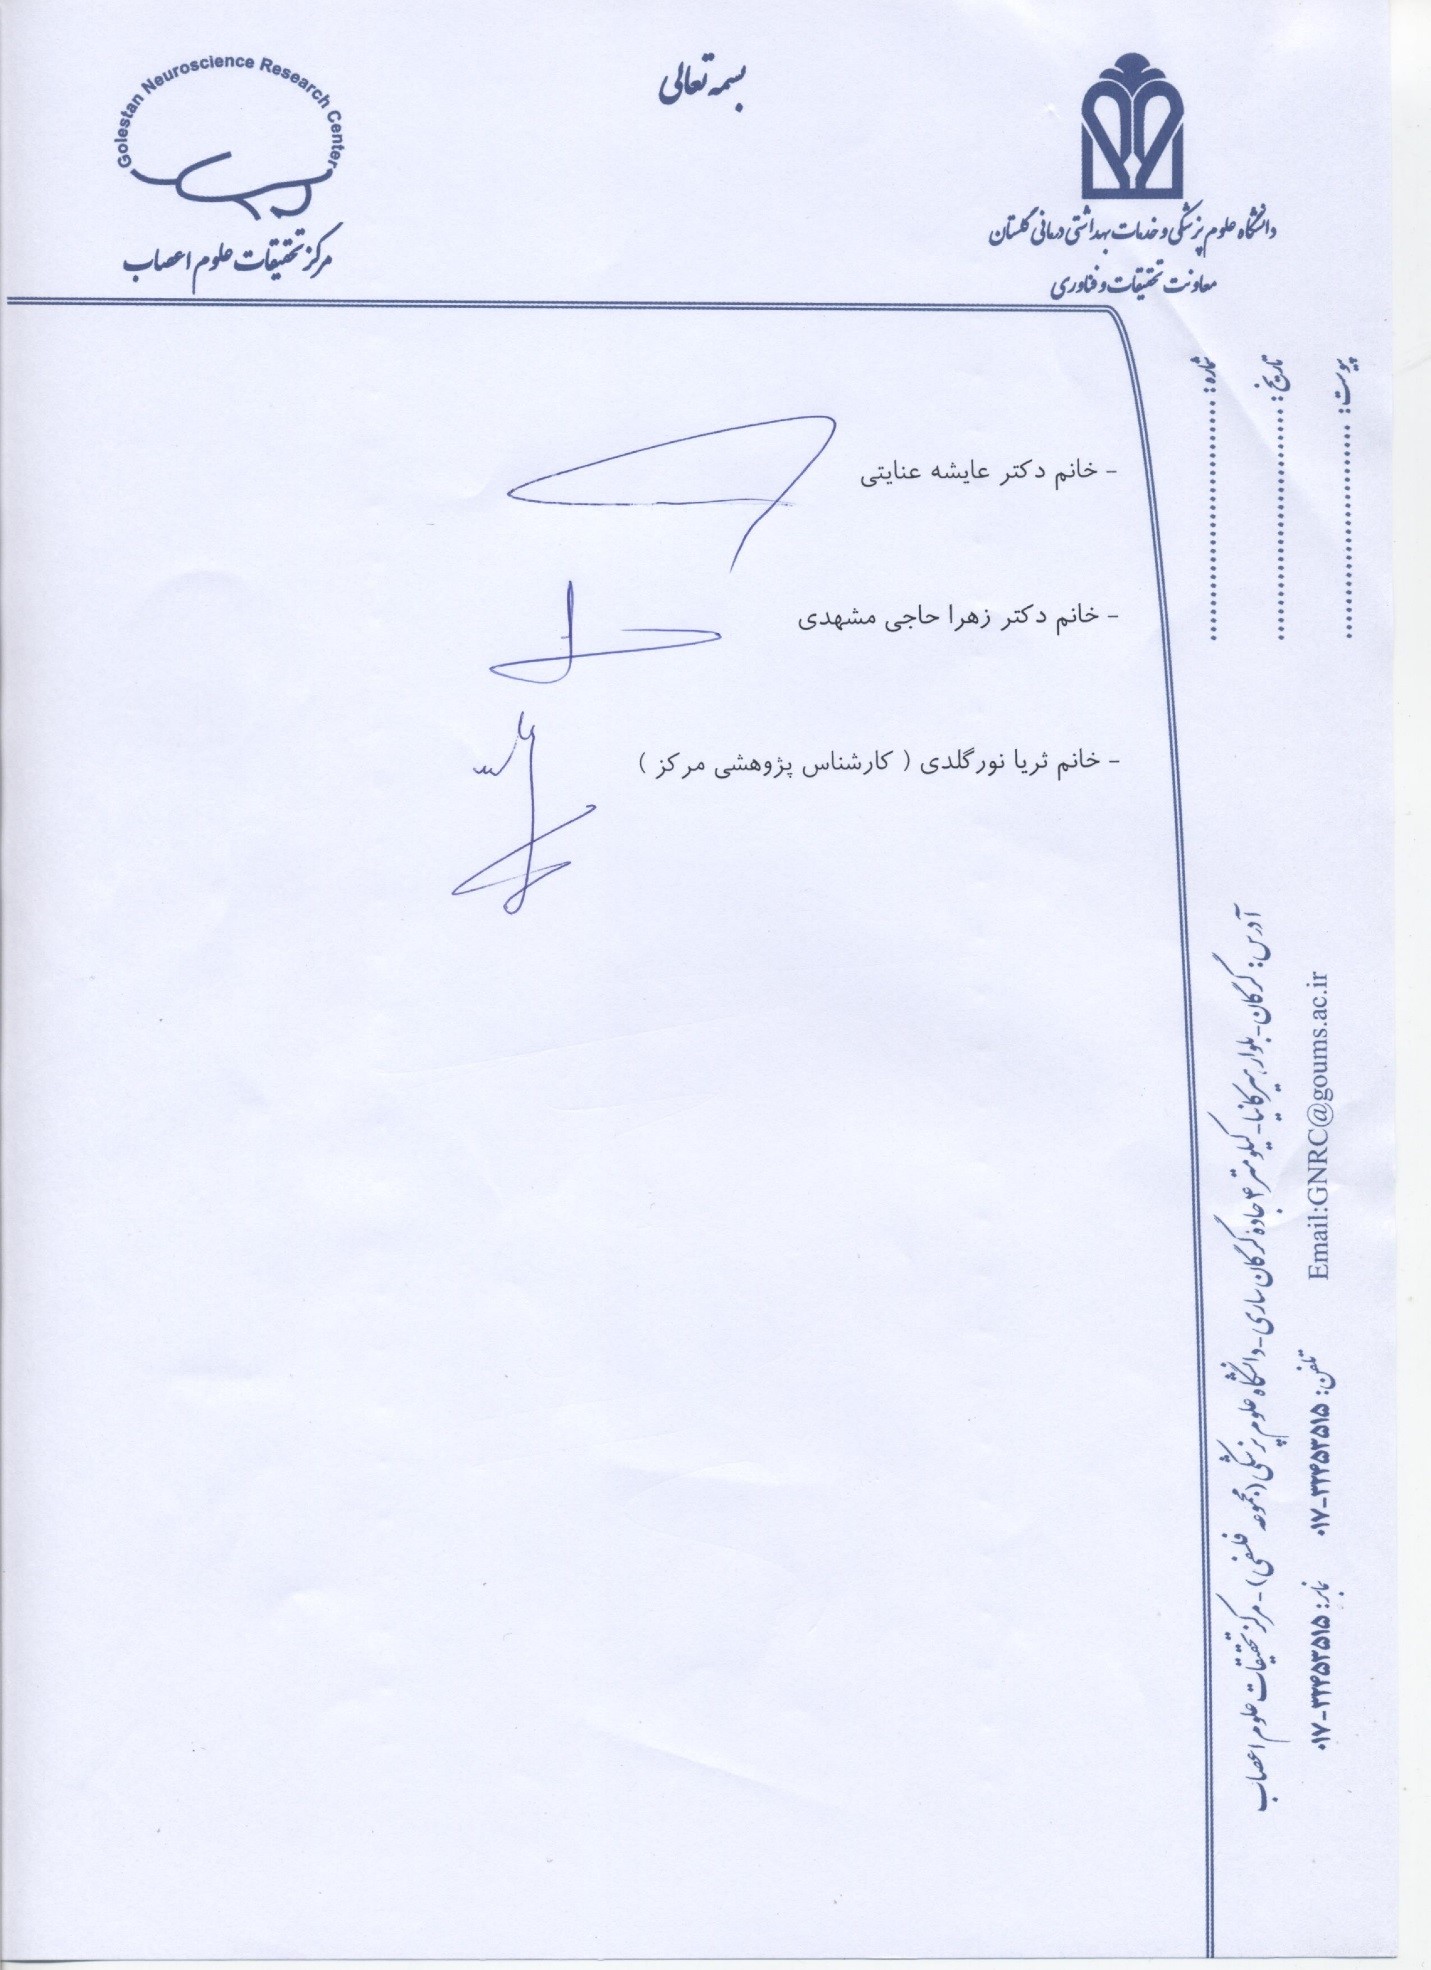 Golestan Neuroscience Research Center
مرکز تحقیقات علوم اعصاب
بسمه تعالی
دانشگاه علوم پزشکی و خدمات بهداشتی درمانی گلستان
معاونت تحقیقات و فناوری
شماره:
تاریخ:
پیوست:
- خانم دکتر عایشه عنایتی
- خانم دکتر زهرا حاجی مشهدی
- خانم ثریا نورگلدی ( کارشناس پژوهشی مرکز )
آدرس: گرگان-بلوار هیرکانیا-کیلومتر ۴ جاده گرگان ساری-دانشگاه علوم پزشکی (مجموعه فلسفی)-مرکز تحقیقات علوم اعصاب
Email:GNRC@goums.ac.ir
تلفن: ۰۱۷-۳۲۴۵۳۵۱۵
نمابر: ۰۱۷-۳۲۴۵۳۵۱۵